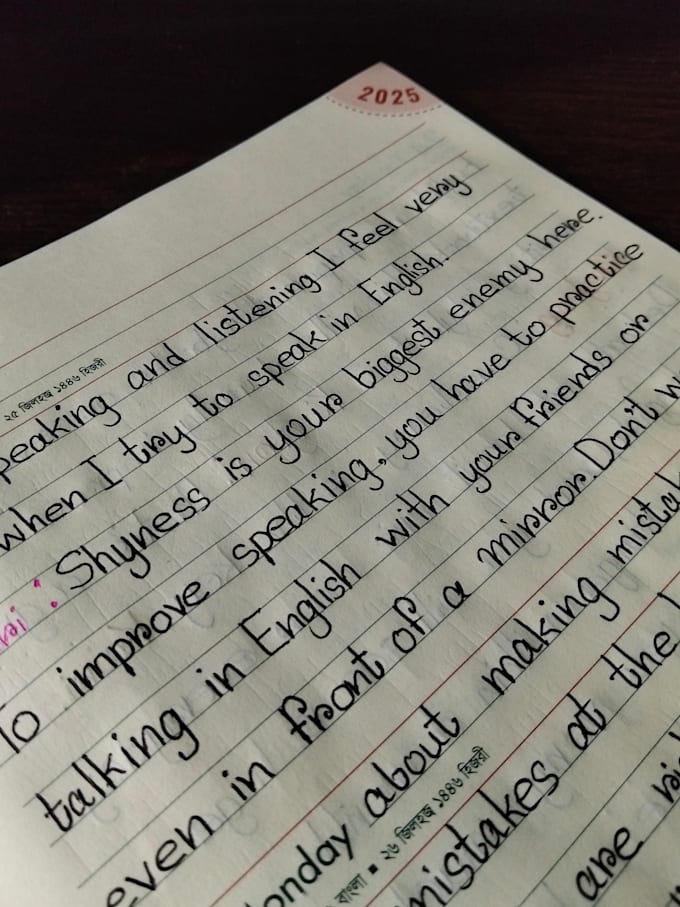 2025
২৫ জিলহজ ১৪৪৬ হিজরী
peaking and listening I feel very
when I try to speak in English.
ri: Shyness is your biggest enemy here.
To improve speaking, you have to practice
talking in English with your friends or
even in front of a mirror. Don't w
onday about making mistak
বাংলা ■ ২৬ জিলহজ ১৪৪৬ হিজরী
mistakes at the
are